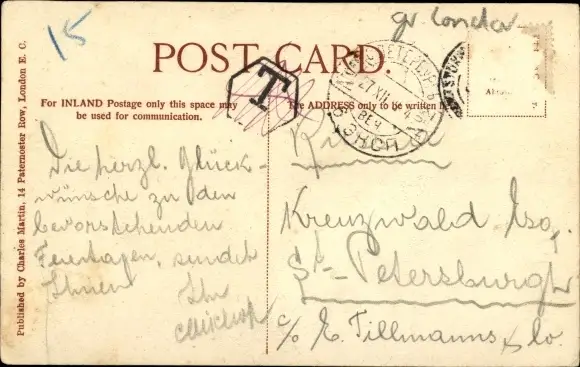 gr. London
15
POST CARD.
T
For INLAND Postage only this space may
be used for communication.
The ADDRESS only to be written
Published by Charles Martin, 14 Paternoster Row, London E. C.
Die herzl. Glück-
wünsche zu den
bevorstehenden
Feiertagen, sendet
Ihnen Ihr
Kreuzwald Esq.
St-Petersburg
c/o E. Tillmanns, & Co.